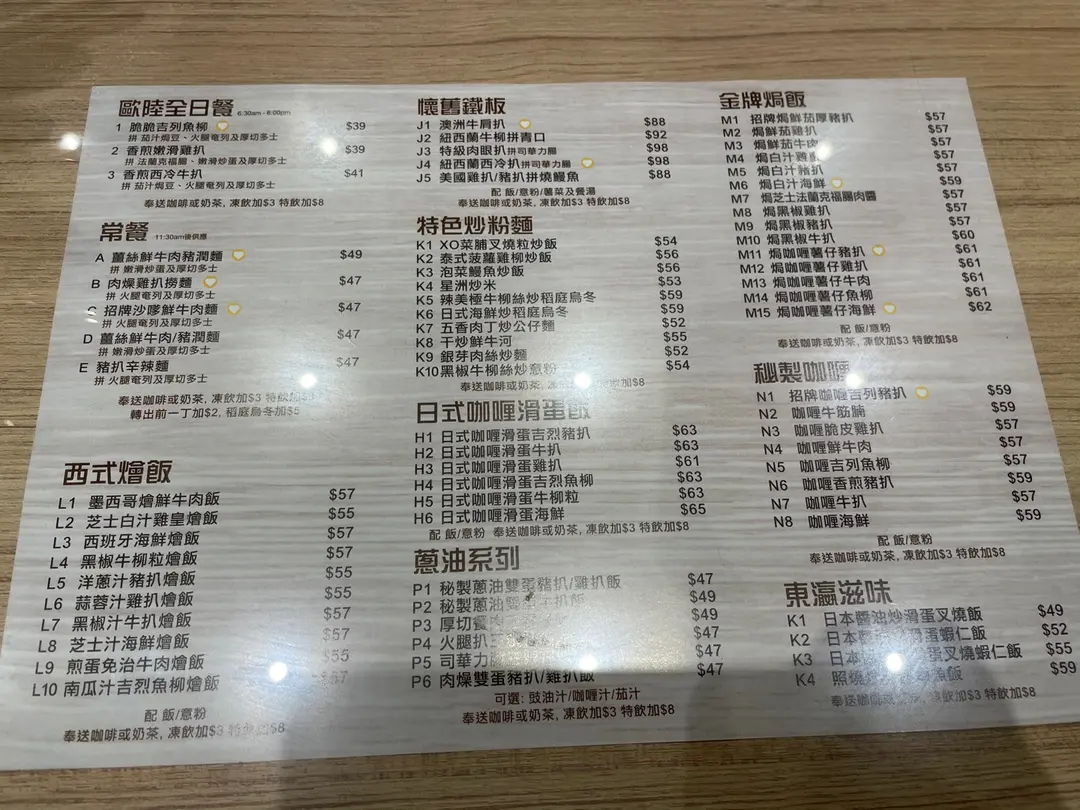 歐陸全日餐 6:30am - 6:00pm
1 脆脆吉列魚柳 $39
拼 茄汁焗豆、火腿奄列及厚切多士
2 香煎嫩滑雞扒 $39
拼 法蘭克福腸、嫩滑炒蛋及厚切多士
3 香煎西冷牛扒 $41
拼 茄汁焗豆、火腿奄列及厚切多士
奉送咖啡或奶茶, 凍飲加$3 特飲加$8
常餐 11:30am後供應
A 薑絲鮮牛肉豬潤麵 $49
拼 嫩滑炒蛋及厚切多士
B 肉燥雞扒撈麵 $47
拼 火腿奄列及厚切多士
C 招牌沙嗲鮮牛肉麵 $47
拼 火腿奄列及厚切多士
D 薑絲鮮牛肉/豬潤麵 $47
拼 嫩滑炒蛋及厚切多士
E 豬扒辛辣麵 $47
拼 火腿奄列及厚切多士
奉送咖啡或奶茶, 凍飲加$3 特飲加$8
轉出前一丁加$2, 稻庭烏冬加$5
西式燴飯
L1 墨西哥燴鮮牛肉飯 $57
L2 芝士白汁雞皇燴飯 $55
L3 西班牙海鮮燴飯 $57
L4 黑椒牛柳粒燴飯 $57
L5 洋蔥汁豬扒燴飯 $55
L6 蒜蓉汁雞扒燴飯 $55
L7 黑椒汁牛扒燴飯 $57
L8 芝士汁海鮮燴飯 $57
L9 煎蛋免治牛肉燴飯 $55
L10 南瓜汁吉烈魚柳燴飯 $57
配 飯/意粉
奉送咖啡或奶茶, 凍飲加$3 特飲加$8
懷舊鐵板
J1 澳洲牛肩扒 $88
J2 紐西蘭牛柳拼青口 $92
J3 特級肉眼扒拼司華力腸 $98
J4 紐西蘭西冷扒拼司華力腸 $98
J5 美國雞扒/豬扒拼燒鰻魚 $88
配 飯/意粉/薯菜及餐湯
奉送咖啡或奶茶, 凍飲加$3 特飲加$8
特色炒粉麵
K1 XO菜脯叉燒粒炒飯 $54
K2 泰式菠蘿雞柳炒飯 $56
K3 泡菜鰻魚炒飯 $56
K4 星洲炒米 $53
K5 辣美極牛柳絲炒稻庭烏冬 $59
K6 日式海鮮炒稻庭烏冬 $59
K7 五香肉丁炒公仔麵 $52
K8 干炒鮮牛河 $55
K9 銀芽肉絲炒麵 $52
K10 黑椒牛柳絲炒意粉 $54
奉送咖啡或奶茶, 凍飲加$3 加$8
日式咖喱滑蛋飯
H1 日式咖喱滑蛋吉烈豬扒 $63
H2 日式咖喱滑蛋牛扒 $63
H3 日式咖喱滑蛋雞扒 $61
H4 日式咖喱滑蛋吉烈魚柳 $63
H5 日式咖喱滑蛋牛柳粒 $63
H6 日式咖喱滑蛋海鮮 $65
配 飯/意粉 奉送咖啡或奶茶, 凍飲加$3 特飲加$8
蔥油系列
P1 秘製蔥油雙蛋豬扒/雞扒飯 $47
P2 秘製蔥油雙蛋牛扒飯 $49
P3 厚切 $49
P4 火腿扒 $47
P5 司華力 $47
P6 肉燥雙蛋豬扒/雞扒飯 $47
可選: 豉油汁/咖喱汁/茄汁
奉送咖啡或奶茶, 凍飲加$3 特飲加$8
金牌焗飯
M1 招牌焗鮮茄厚豬扒 $57
M2 焗鮮茄雞扒 $57
M3 焗鮮茄牛肉 $57
M4 焗白汁雞 $57
M5 焗白汁豬扒 $57
M6 焗白汁海鮮 $59
M7 焗芝士法蘭克福腸肉醬 $57
M8 焗黑椒雞扒 $57
M9 焗黑椒豬扒 $57
M10 焗黑椒牛扒 $60
M11 焗咖喱薯仔豬扒 $61
M12 焗咖喱薯仔雞扒 $61
M13 焗咖喱薯仔牛肉 $61
M14 焗咖喱薯仔魚柳 $61
M15 焗咖喱薯仔海鮮 $62
配 飯/意粉
奉送咖啡或奶茶, 凍飲加$3 特飲加$8
秘製咖喱
N1 招牌咖喱吉列豬扒 $59
N2 咖喱牛筋腩 $59
N3 咖喱脆皮雞扒 $57
N4 咖喱鮮牛肉 $57
N5 咖喱吉列魚柳 $57
N6 咖喱香煎豬扒 $59
N7 咖喱牛扒 $57
N8 咖喱海鮮 $59
配 飯/意粉
奉送咖啡或奶茶, 凍飲加$3 特飲加$8
東瀛滋味
K1 日本醬油炒滑蛋叉燒飯 $49
K2 日本醬 蛋蝦仁飯 $52
K3 日本 蛋叉燒蝦仁飯 $55
K4 照燒 魚飯 $59
奉送咖啡或奶茶, 凍飲加$3 特飲加$8